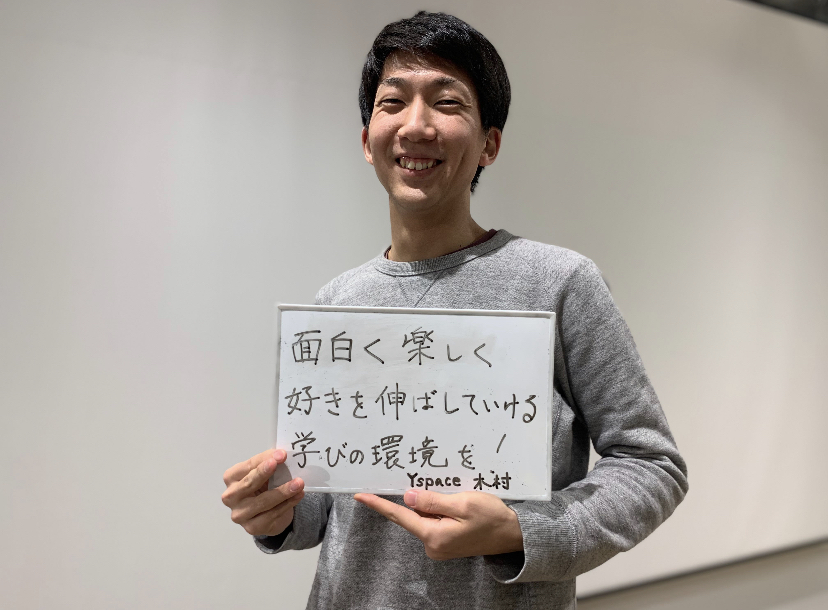 面白く楽しく
好きを伸ばしていける
学びの環境を!
Yspace 木村